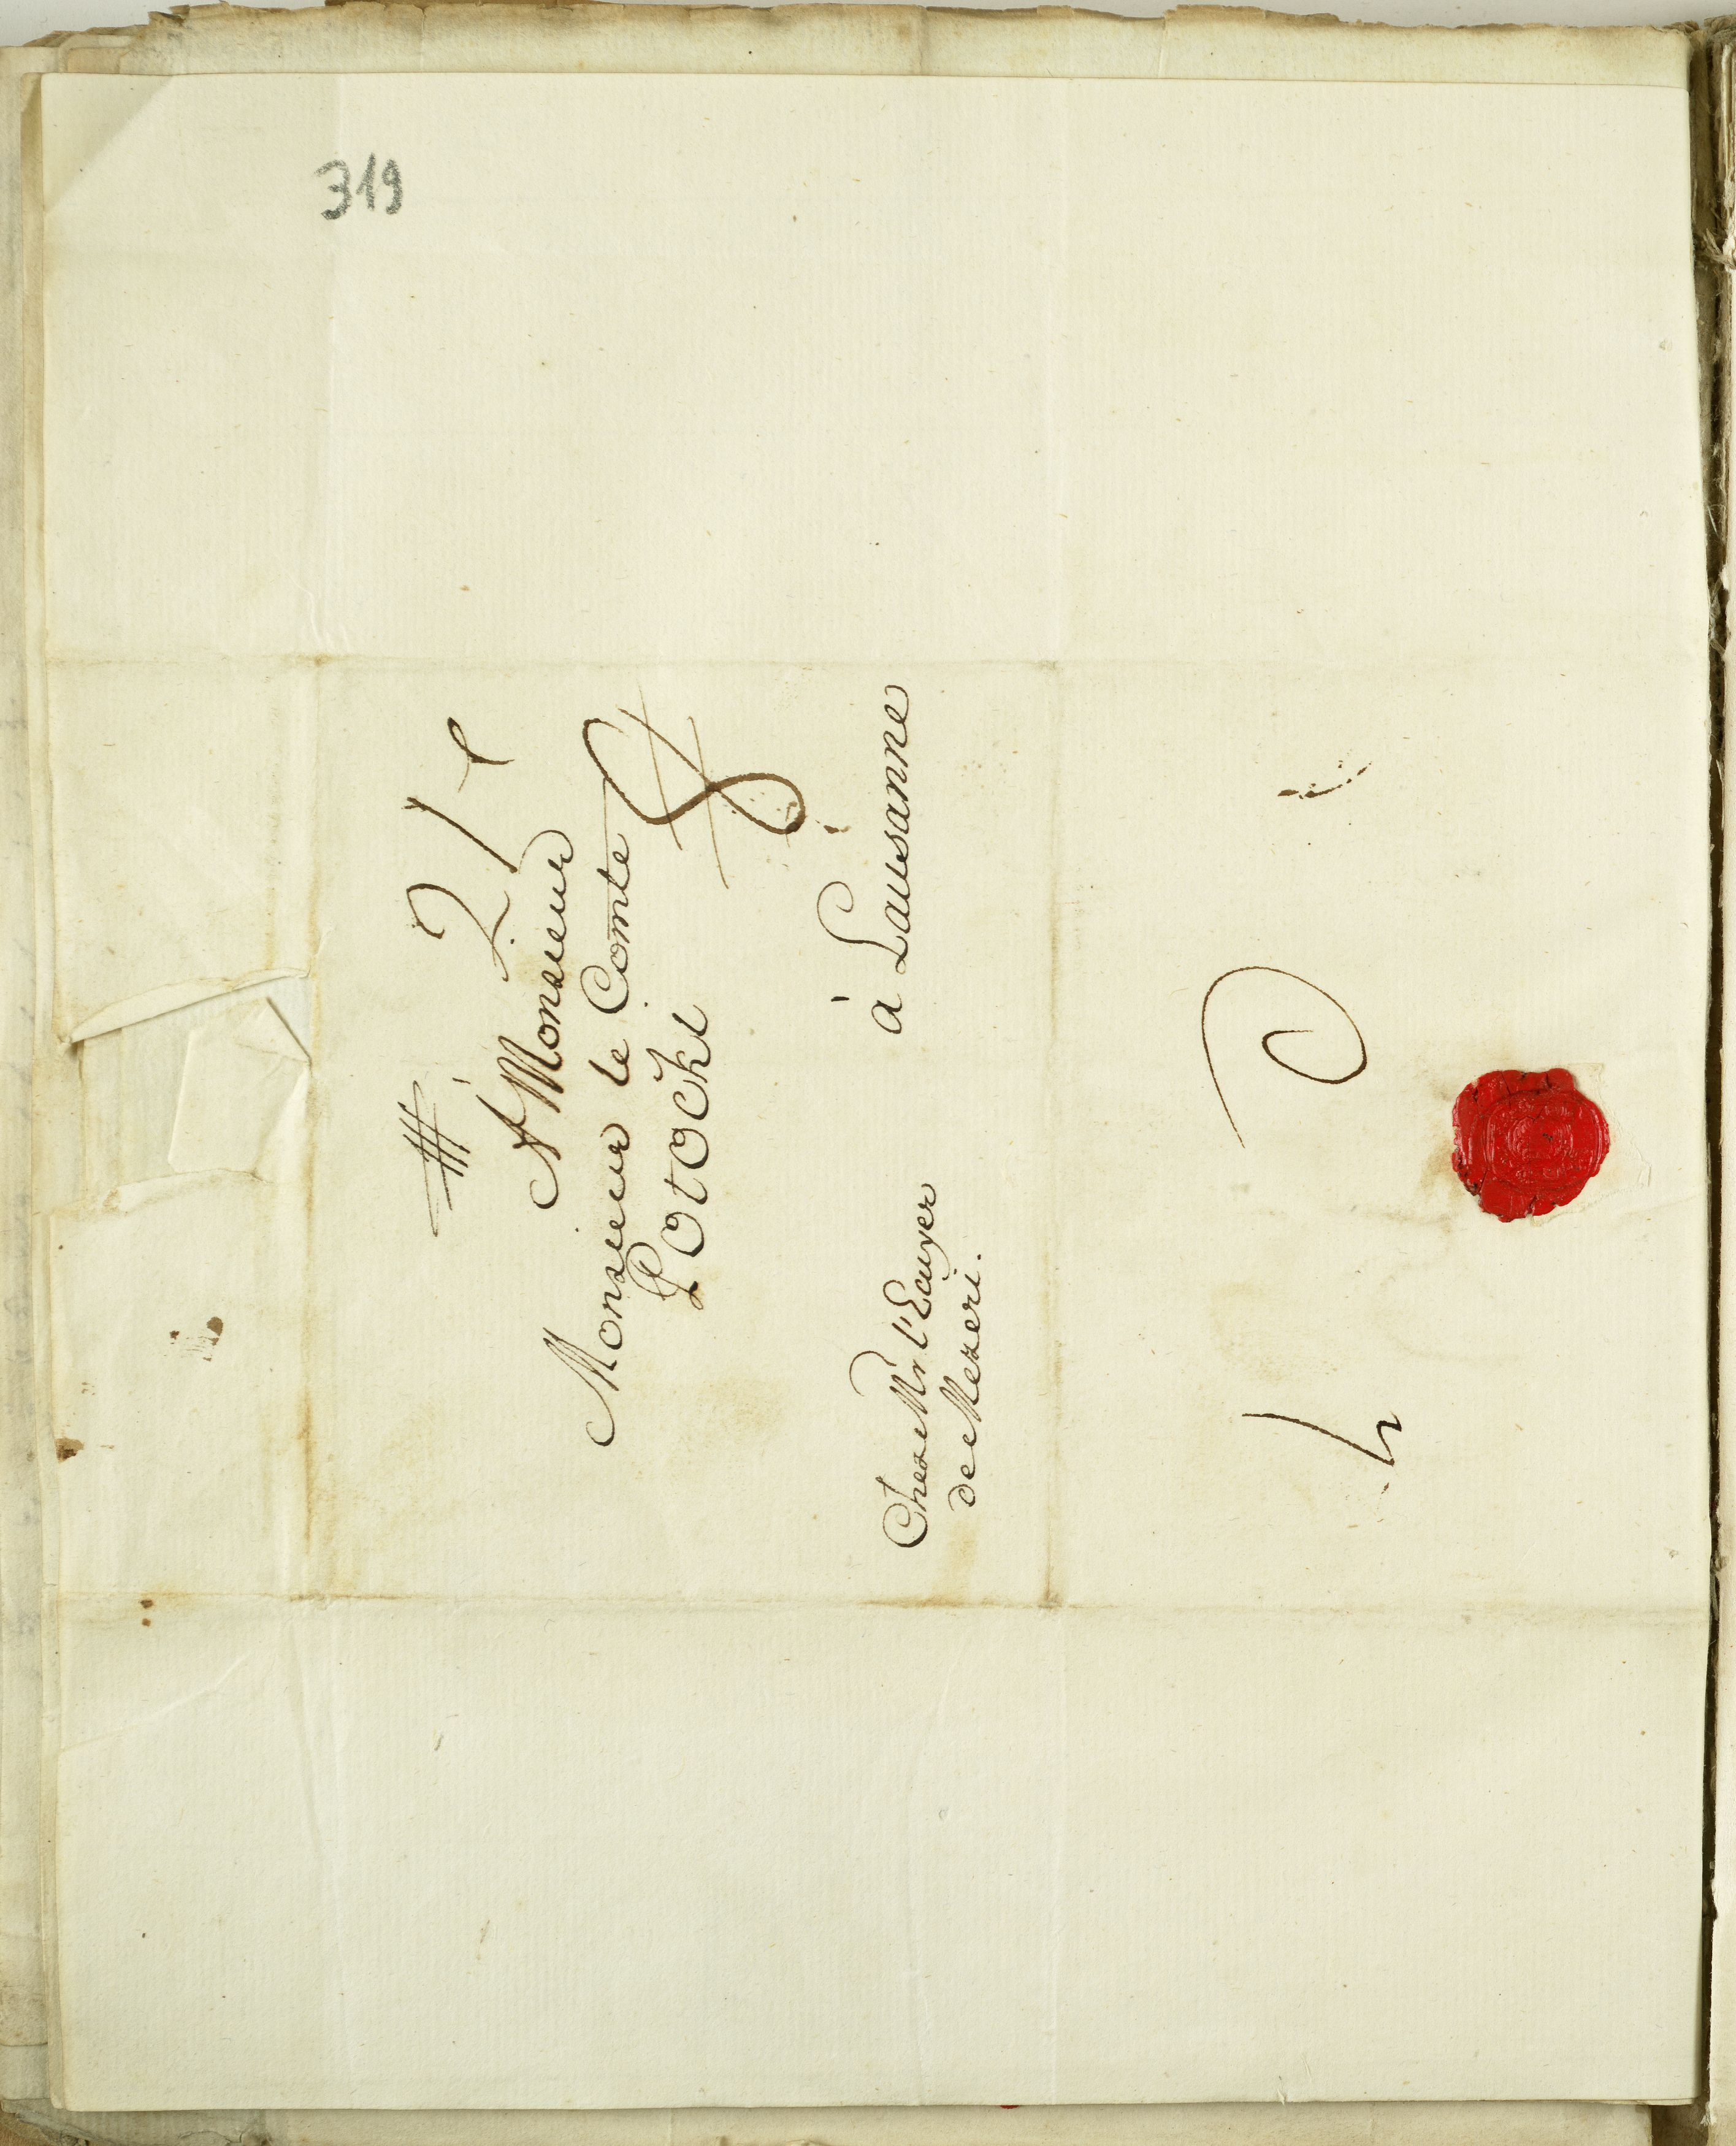 319
21
A Monsieur
Monsieur le Comte
Potocki
à Lausanne
Chez Mr l'Ecuyer
de Mezeri.